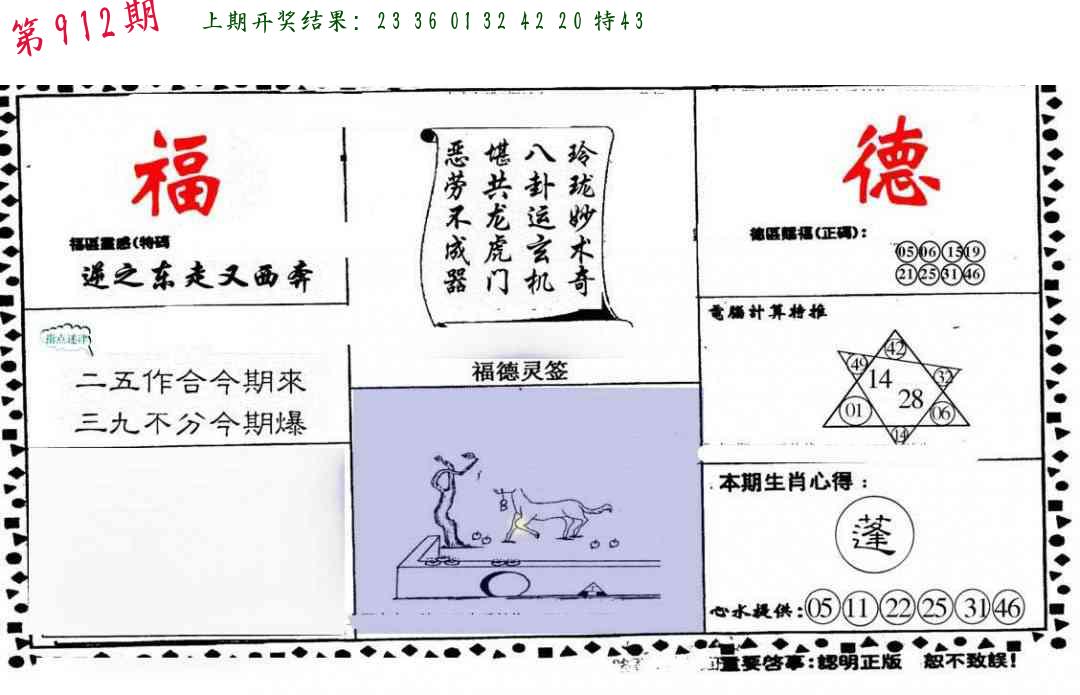 第912期
上期开奖结果: 23 36 01 32 42 20 特43
福
福區靈感(特碼
逆之东走又西奔
指点迷津
二五作合今期來
三九不分今期爆
玲珑妙术奇
八卦运玄机
堪共龙虎门
恶劳不成器
福德灵签
8
德
德區賜福(正碼):
05 06 15 19
21 25 31 46
電腦計算特推
42
49 14 32
28
01 06
14
本期生肖心得:
蓬
心水提供:05 11 22 25 31 46
重要启事:認明正版 恕不致誤!